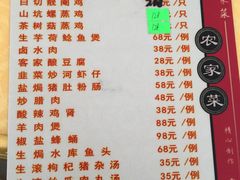 白切靓阉鸡 /只
山坑螺蒸鸡 /只
茶树菇蒸鸡 /只
生芋荷鲶鱼煲 68元/例
卤水肉 38元/例
客家酿豆腐 38元/例
韭菜炒河虾仔 38元/例
盐焗猪肚肠 58元/例
炒腊肉 48元/例
酸辣鸡肾 38元/例
羊肉煲 98元/例
椒盐蜂蛹 58元/例
生焗水库鱼头 58元/例
生滚枸杞猪杂汤 35元/例
35元/例
农家菜
精心制作